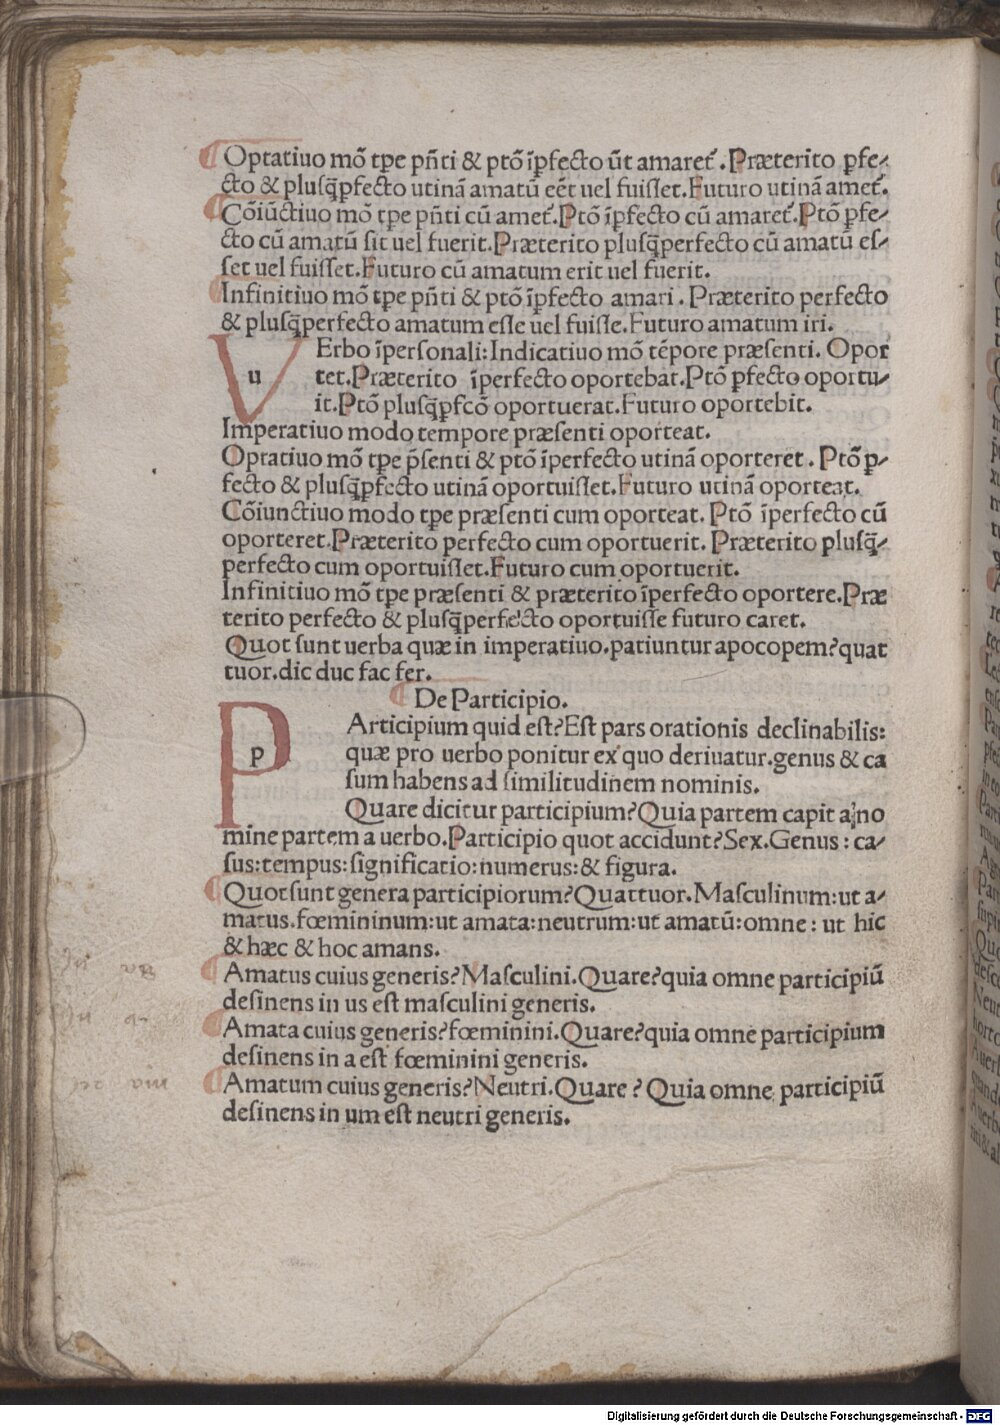 ¶ Optatiuo mõ tꝑe pñti & ptõ ĩꝑfecto ũt amaret᷑. Præterito ꝑfe⸗
cto & plusꝗ̃ꝑfecto utinã amatũ eẽt uel fuiſſet. Futuro utinã amet᷑.
¶ Cõiũctiuo mõ tꝑe pñti cũ amet᷑. Ptõ ĩꝑfecto cũ amaret᷑. Ptõ ꝑfe⸗
cto cũ amatũ ſit uel fuerit. Præterito pluſꝗ̃perfecto cũ amatũ eſ⸗
ſet uel fuiſſet. Futuro cũ amatum erit uel fuerit.
¶ Infinitiuo mõ tꝑe pñti & ptõ ĩꝑfecto amari. Præterito perfecto
& pluſꝗ̃perfecto amatum eſſe uel fuiſſe. Futuro amatum iri.
VErbo ĩperſonali: Indicatiuo mõ tẽpore præſenti. Opor
u tet. Præterito ĩperfecto oportebat. Ptõ ꝑfecto oportu⸗
it. Ptõ pluſꝗ̃ꝑfcõ oportuerat. Futuro oportebit.
Imperatiuo modo tempore præſenti oporteat.
Optatiuo mõ tꝑe p̃ſenti & ptõ ĩperfecto utinã oporteret. Ptõ ꝑ⸗
fecto & pluſꝗ̃ꝑfecto utinã oportuiſſet. Futuro utinã oporteat.
Cõiunctiuo modo tꝑe præſenti cum oporteat. Ptõ ĩperfecto cũ
oporteret. Præterito perfecto cum oportuerit. Præterito pluſꝗ̃⸗
perfecto cum oportuiſſet. Futuro cum oportuerit.
Infinitiuo mõ tꝑe præſenti & præterito ĩperfecto oportere. Præ
terito perfecto & pluſꝗ̃perfecto oportuiſſe futuro caret.
Quot ſunt uerba quæ in imperatiuo. patiuntur apocopem? quat
tuor. dic duc fac fer.
¶ De Participio.
PArticipium quid eſt? Eſt pars orationis declinabilis:
p quæ pro uerbo ponitur ex quo deriuatur. genus & ca
ſum habens ad ſimilitudinem nominis.
Quare dicitur participium? Quia partem capit a no
mine partem a uerbo. Participio quot accidunt? Sex. Genus: ca⸗
ſus: tempus: ſignificatio: numerus: & figura.
¶ Quot ſunt genera participiorum? Quattuor. Maſculinum: ut a⸗
matus. fœmininum: ut amata: neutrum: ut amatũ: omne: ut hic
& hæc & hoc amans.
¶ Amatus cuius generis? Maſculini. Quare? quia omne participiũ
deſinens in us eſt maſculini generis.
¶ Amata cuius generis? fœminini. Quare? quia omne participium
deſinens in a eſt fœminini generis.
¶ Amatum cuius generis? Neutri. Quare? Quia omne participiũ
deſinens in um eſt neutri generis.
Digitalisierung gefördert durch die Deutsche Forschungsgemeinschaft - DFG